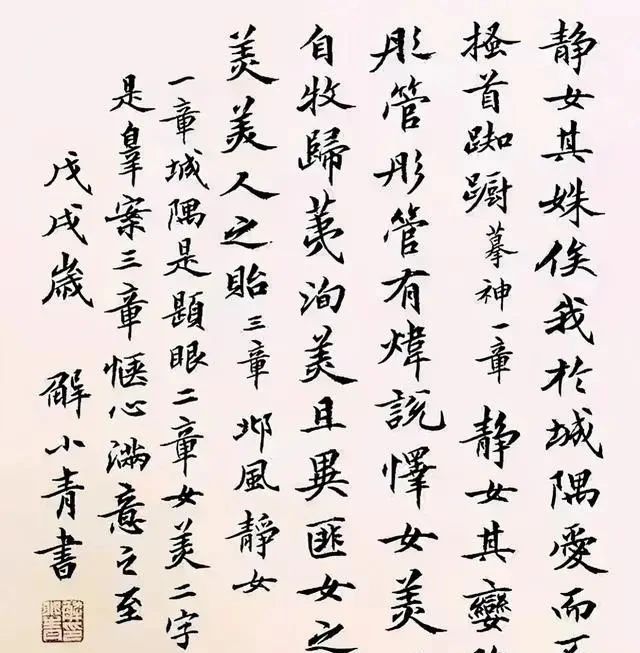 静女其姝俟我於城隅愛而
搔首踟蹰摹神一章静女其孌
彤管彤管有煒説懌女美
自牧歸荑洵美且異匪女之
美美人之貽三章邶風静女
一章城隅是題眼二章女美二字
是羣案三章愜心滿意之至
戊戌歲 解小青書